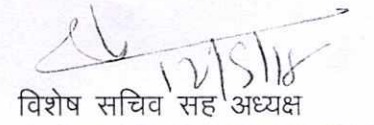 12/5/18
विशेष सचिव सह अध्यक्ष